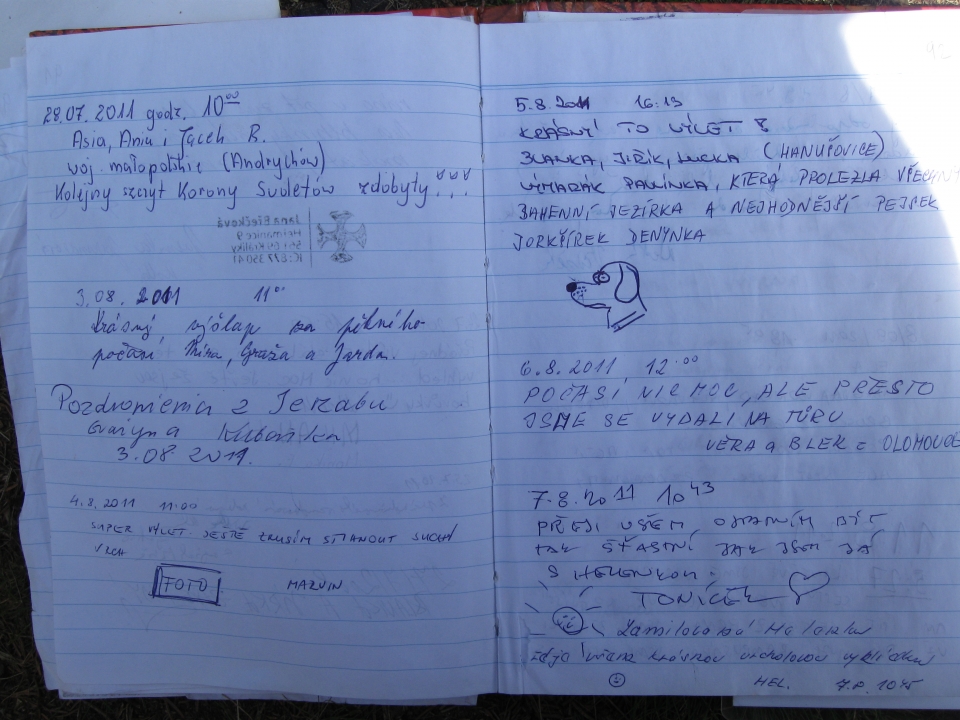 28.07.2011 godz. 10⁰⁰
Asia, Ania i Jacek B.
woj. małopolskie (Andrychów)
Kolejny szczyt Korony Sudetów zdobyty!!!
Jana Biečková
Heřmanice 9
561 69 Králíky
3.08.2011 11⁰⁰
Krásný výšlap za pěkného
počasí Mira, Graža a Jarda.
Pozdrowienia z Jerzabu
Kubańka
3.08 2011.
4.8.2011 11:00
SUPER VÝLET JEŠTĚ ZKUSÍM STANOUT SUCHÝ
VRCH
FOTO MARVIN
5.8.2011 16:13
KRÁSNÝ TO VÝLET
BLANKA, JIŘÍK, LUCKA (HANUŠOVICE)
PAVLÍNKA, KTERÁ PROLEZLA VŠECHNY
BAHENNÍ JEZÍRKA A NEJHODNĚJŠÍ PEJSEK
JORKŠÍREK DENYNKA
6.8.2011 12.⁰⁰
POČASÍ NIC MOC, ALE PŘESTO
JSME SE VYDALI NA TÚRU
VĚRA a BLEK z OLOMOUCE
7.8.2011 10⁴³
PŘEJI VŠEM OSTATNÍM BÝT
TAK ŠŤASTNÍ JAK JSEM JÁ
S HELENKOU.
TONÍČEK
Zamilovaná Helenka
krásnou vrcholovou vyhlídku
HEL. 7.8. 1045